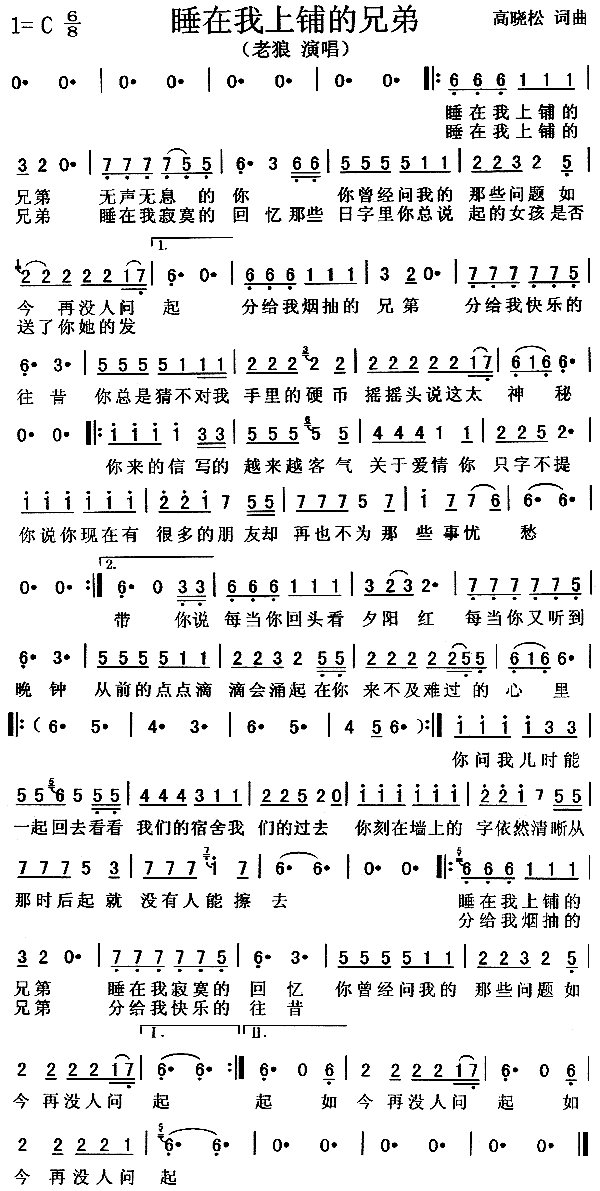 1=C 6/8 睡在我上铺的兄弟 高晓松 词曲
（老狼 演唱）
0· 0· | 0· 0· | 0· 0· | 0· 0· |: 6 6 6 1 1 1 |
睡在我上铺的
睡在我上铺的
3 2 0· | 7 7 7 7 5 5 | 6· 3 6 6 | 5 5 5 5 1 1 | 2 2 2 3 2 5 |
兄弟 无声无息 的你 你曾经问我的 那些问题 如
兄弟 睡在我寂寞的 回 忆 那些 日字里你总说 起的女孩是否
1.
2 2 2 2 2 1 7 | 6· 0· | 6 6 6 1 1 1 | 3 2 0· | 7 7 7 7 7 5 |
今 再没人问 起 分给我烟抽的 兄第 分给我快乐的
送了你她的发
6· 3· | 5 5 5 5 5 1 1 | 2 2 2 2 2 | 2 2 2 2 2 1 7 | 6 1 6 6· |
往昔 你总是猜不对我 手里的硬币 摇摇头说这太 神 秘
0· 0· |: i i i i 3 3 | 5 5 5 5 5 | 4 4 4 1 1 | 2 2 5 2· |
你来的信 写的 越来越客 气 关于爱情 你 只字不提
i i i i i i | 2 2 2 1 7 5 5 | 7 7 7 5 5 | 1 7 7 6 | 6· 6· |
你说你现在有 很多的朋友却 再也不为 那 些事忧 愁
2.
0· 0· :| 6· 0 3 3 | 6 6 6 1 1 1 | 3 2 3 2· | 7 7 7 7 7 5 |
带 你说 每当你回头看 夕阳 红 每当你又听到
6· 3· | 5 5 5 5 1 1 | 2 2 3 2 5 5 | 2 2 2 2 2 5 5 | 6 1 6 6· |
晚 钟 从前的点点滴 滴会涌起 在你 来不及难过 的 心 里
|: ( 6· 5· | 4· 3· | 6· 5· | 4 5 6· ) :| i i i i 3 3 |
你问我儿时能
5 5 6 5 5 5 | 4 4 4 3 1 1 | 2 2 5 2 0 | i i i i i i | 2 2 i 7 5 5 |
一起回去看看 我们的宿舍我 们的过去 你刻在墙上的 字依然清晰从
7 7 7 5 3 | 7 7 7 1 7 | 6· 6· | 0· 0· |: 6 6 6 1 1 1 |
那时后起就 没有人能 擦去 睡在我上铺的
分给我烟抽的
3 2 0· | 7 7 7 7 7 5 | 6· 3· | 5 5 5 5 1 1 | 2 2 3 2 5 |
兄第 睡在我寂寞的 回 忆 你曾经问我的 那些问题 如
兄第 分给我快乐的 往昔
I. II.
2 2 2 2 1 7 | 6· 6· :| 6· 0 6 | 2 2 2 2 1 7 | 6· 0 6 |
今 再没人问 起 起 如 今 再没人问 起 如
2 2 2 2 1 | 6· 6· | 0· 0· | 0· 0· | 0· 0· |
今 再没人问 起